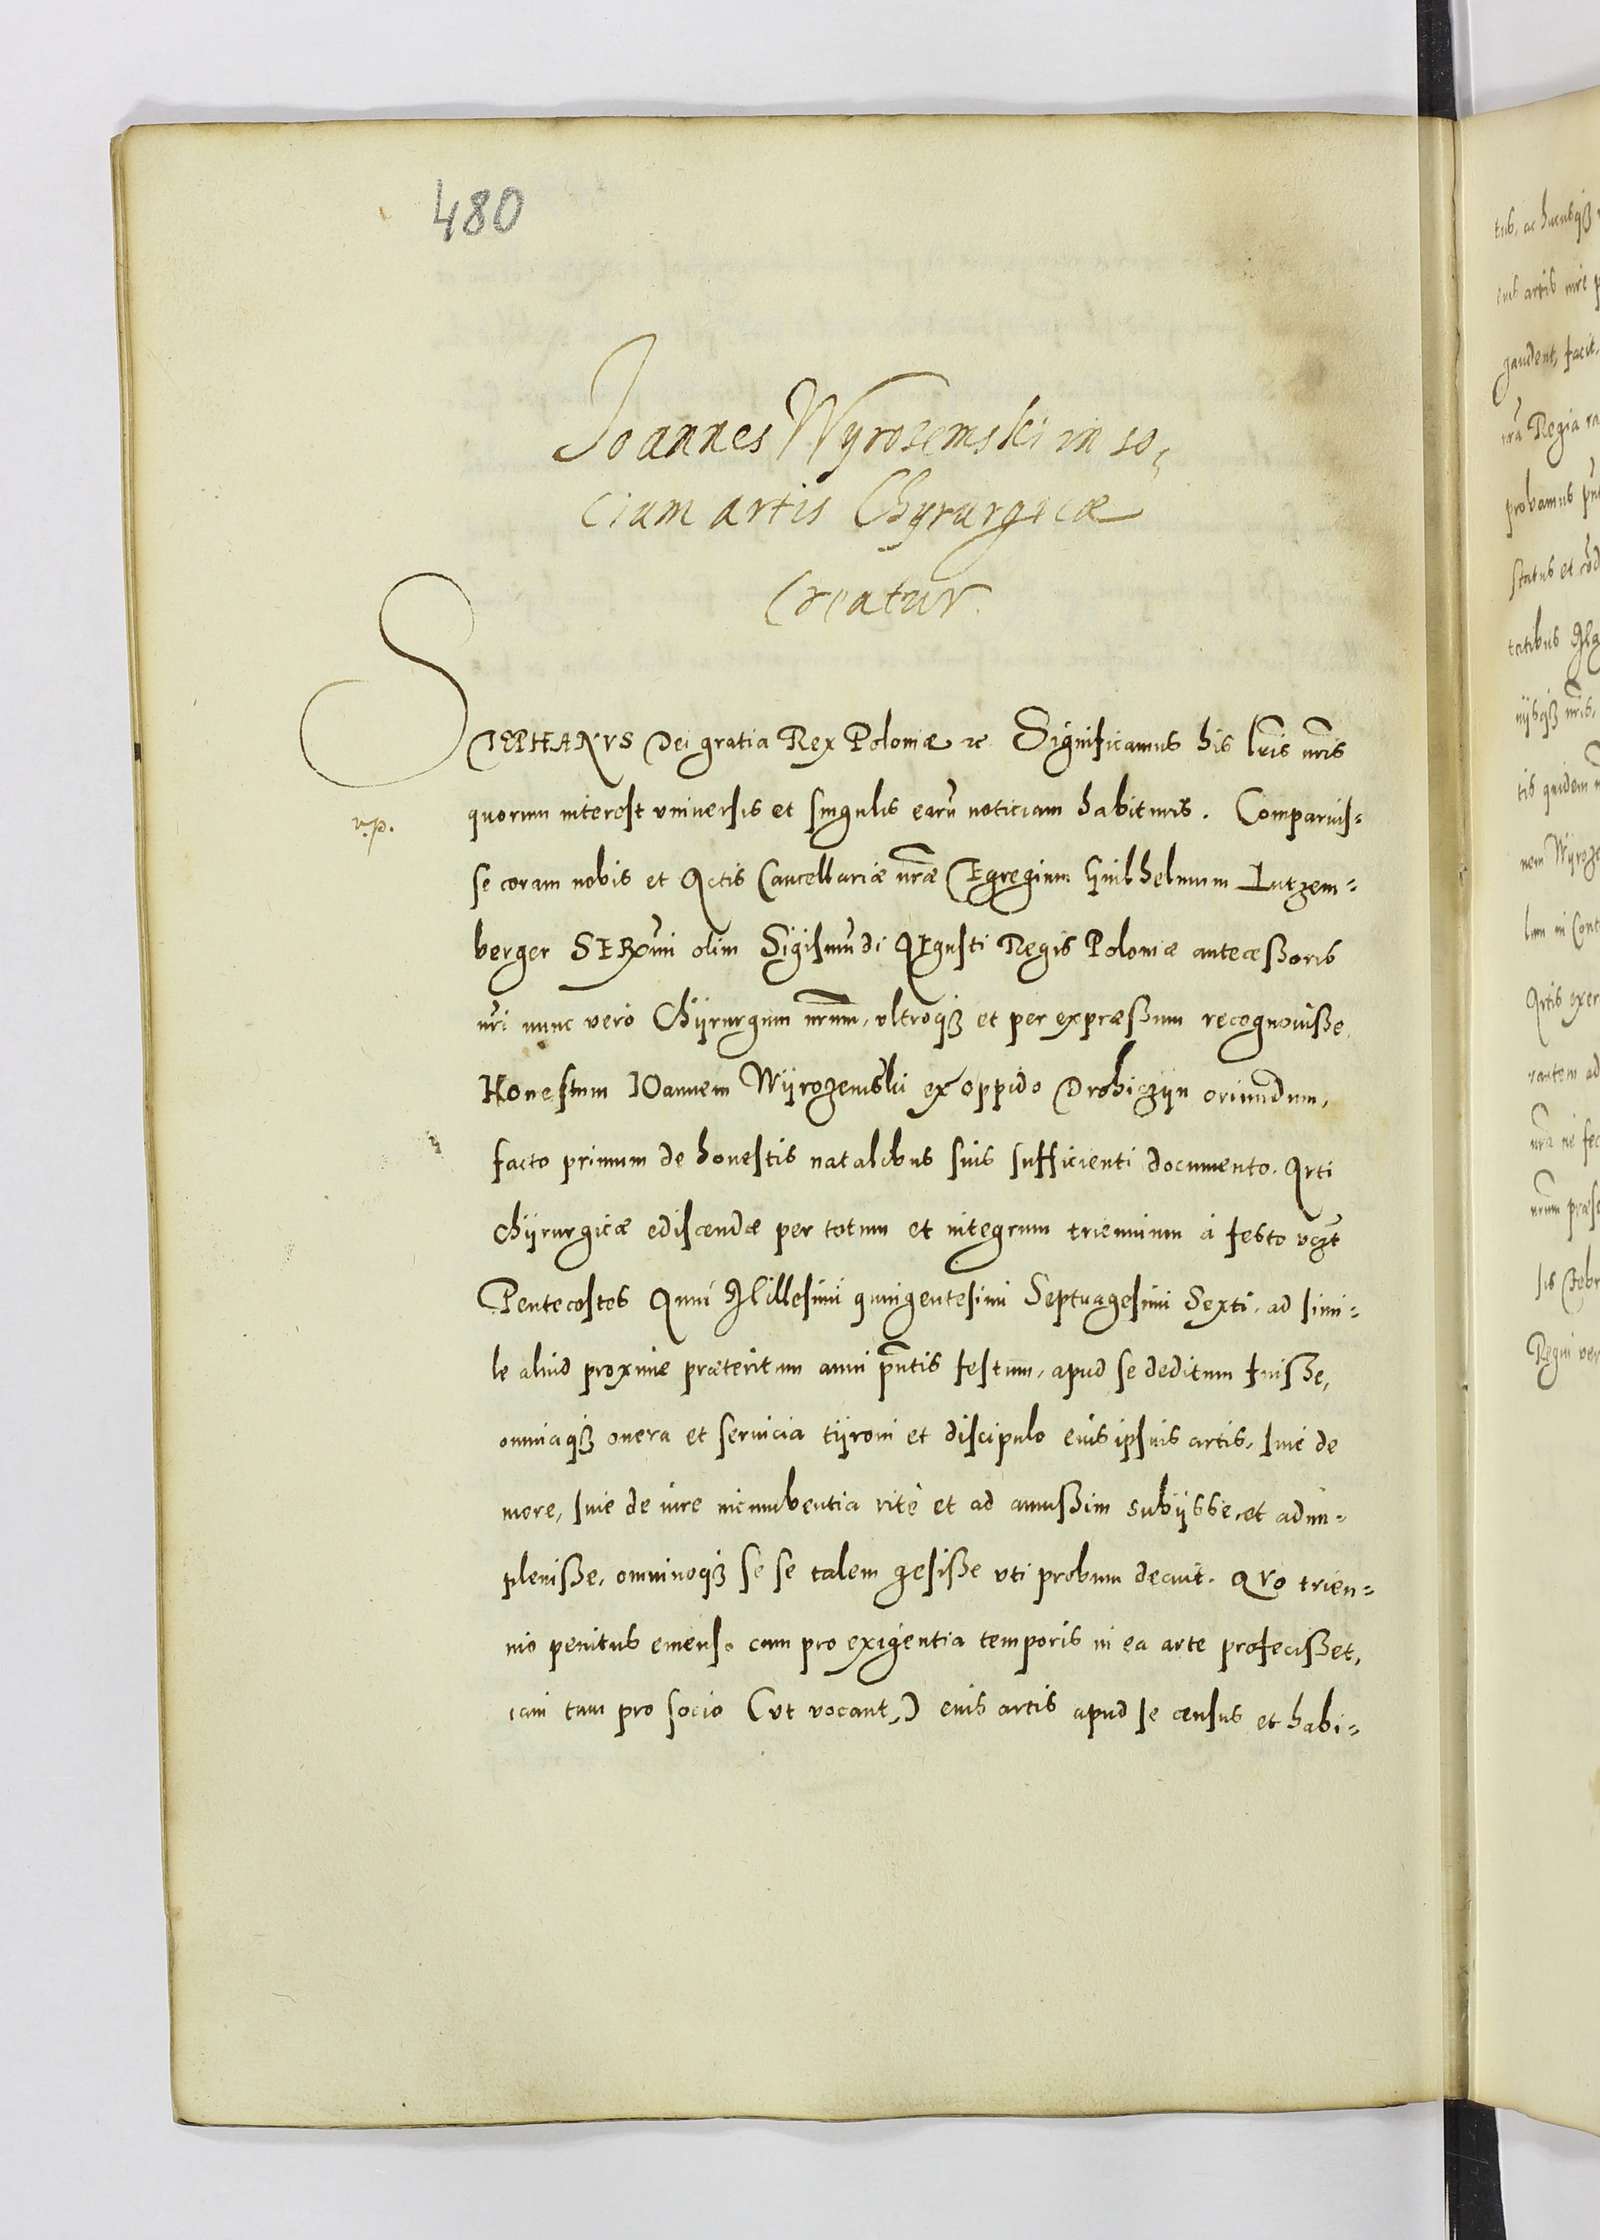 480
Joannes Wyrozemski in so¸
cium artis Chyrurgicæ
Creatur.
STEPHANVS Dei gratia Rex Poloniæ &c Significamus his lr̃is nr̃is
quorum interest vniuersis et singulis earũ noticiam habituris. Comparuis=
v.p.
se coram nobis et Actis Cancellariæ nr̃æ Egregium Guilhelmum Lutzem=
berger SERmi olim Sigismũdi Augusti Regis Poloniæ antecæssoris
nr̃i nunc vero Chÿrurgum nr̃um, vltroq3 et per expræssum recognouisse.
Honestum IOannem Wÿrozemski ex oppido Drohiczÿn oriundum,
facto primum de honestis natalibus suis sufficienti documento. Arti
Chÿrurgicæ ediscendæ per totum et integrum triennium à festo vczt
Pentecostes Anni Millesimi quingentesimi Septuagesimi Sexti, ad simi=
le aliud proxime præteritum anni pñtis festum, apud se deditum fuisse,
omniaq3 onera et seruicia tÿroni et discipulo eius ipsius artis, siue de
more, siue de iure incumbentia ritè et ad amussim subÿsse, et adim=
pleuisse, omninoq3 se se talem gesisse vti probum decuit. QVo trien=
nio penitus emenso cum pro exigentia temporis in ea arte profecisset,
iam tum pro socio (vt vocant,) eius artis apud se census et habi=
tus, ac hucusq3
eius artis
gaudent, facit.
Regia
probamus
status et
tatibus
nÿsq3 nr̃is,
tis quidem
nem Wÿroze
lum in Cont
Artis exer
rantem ad
nr̃a
nr̃um præse
sis Febr
Regni ver